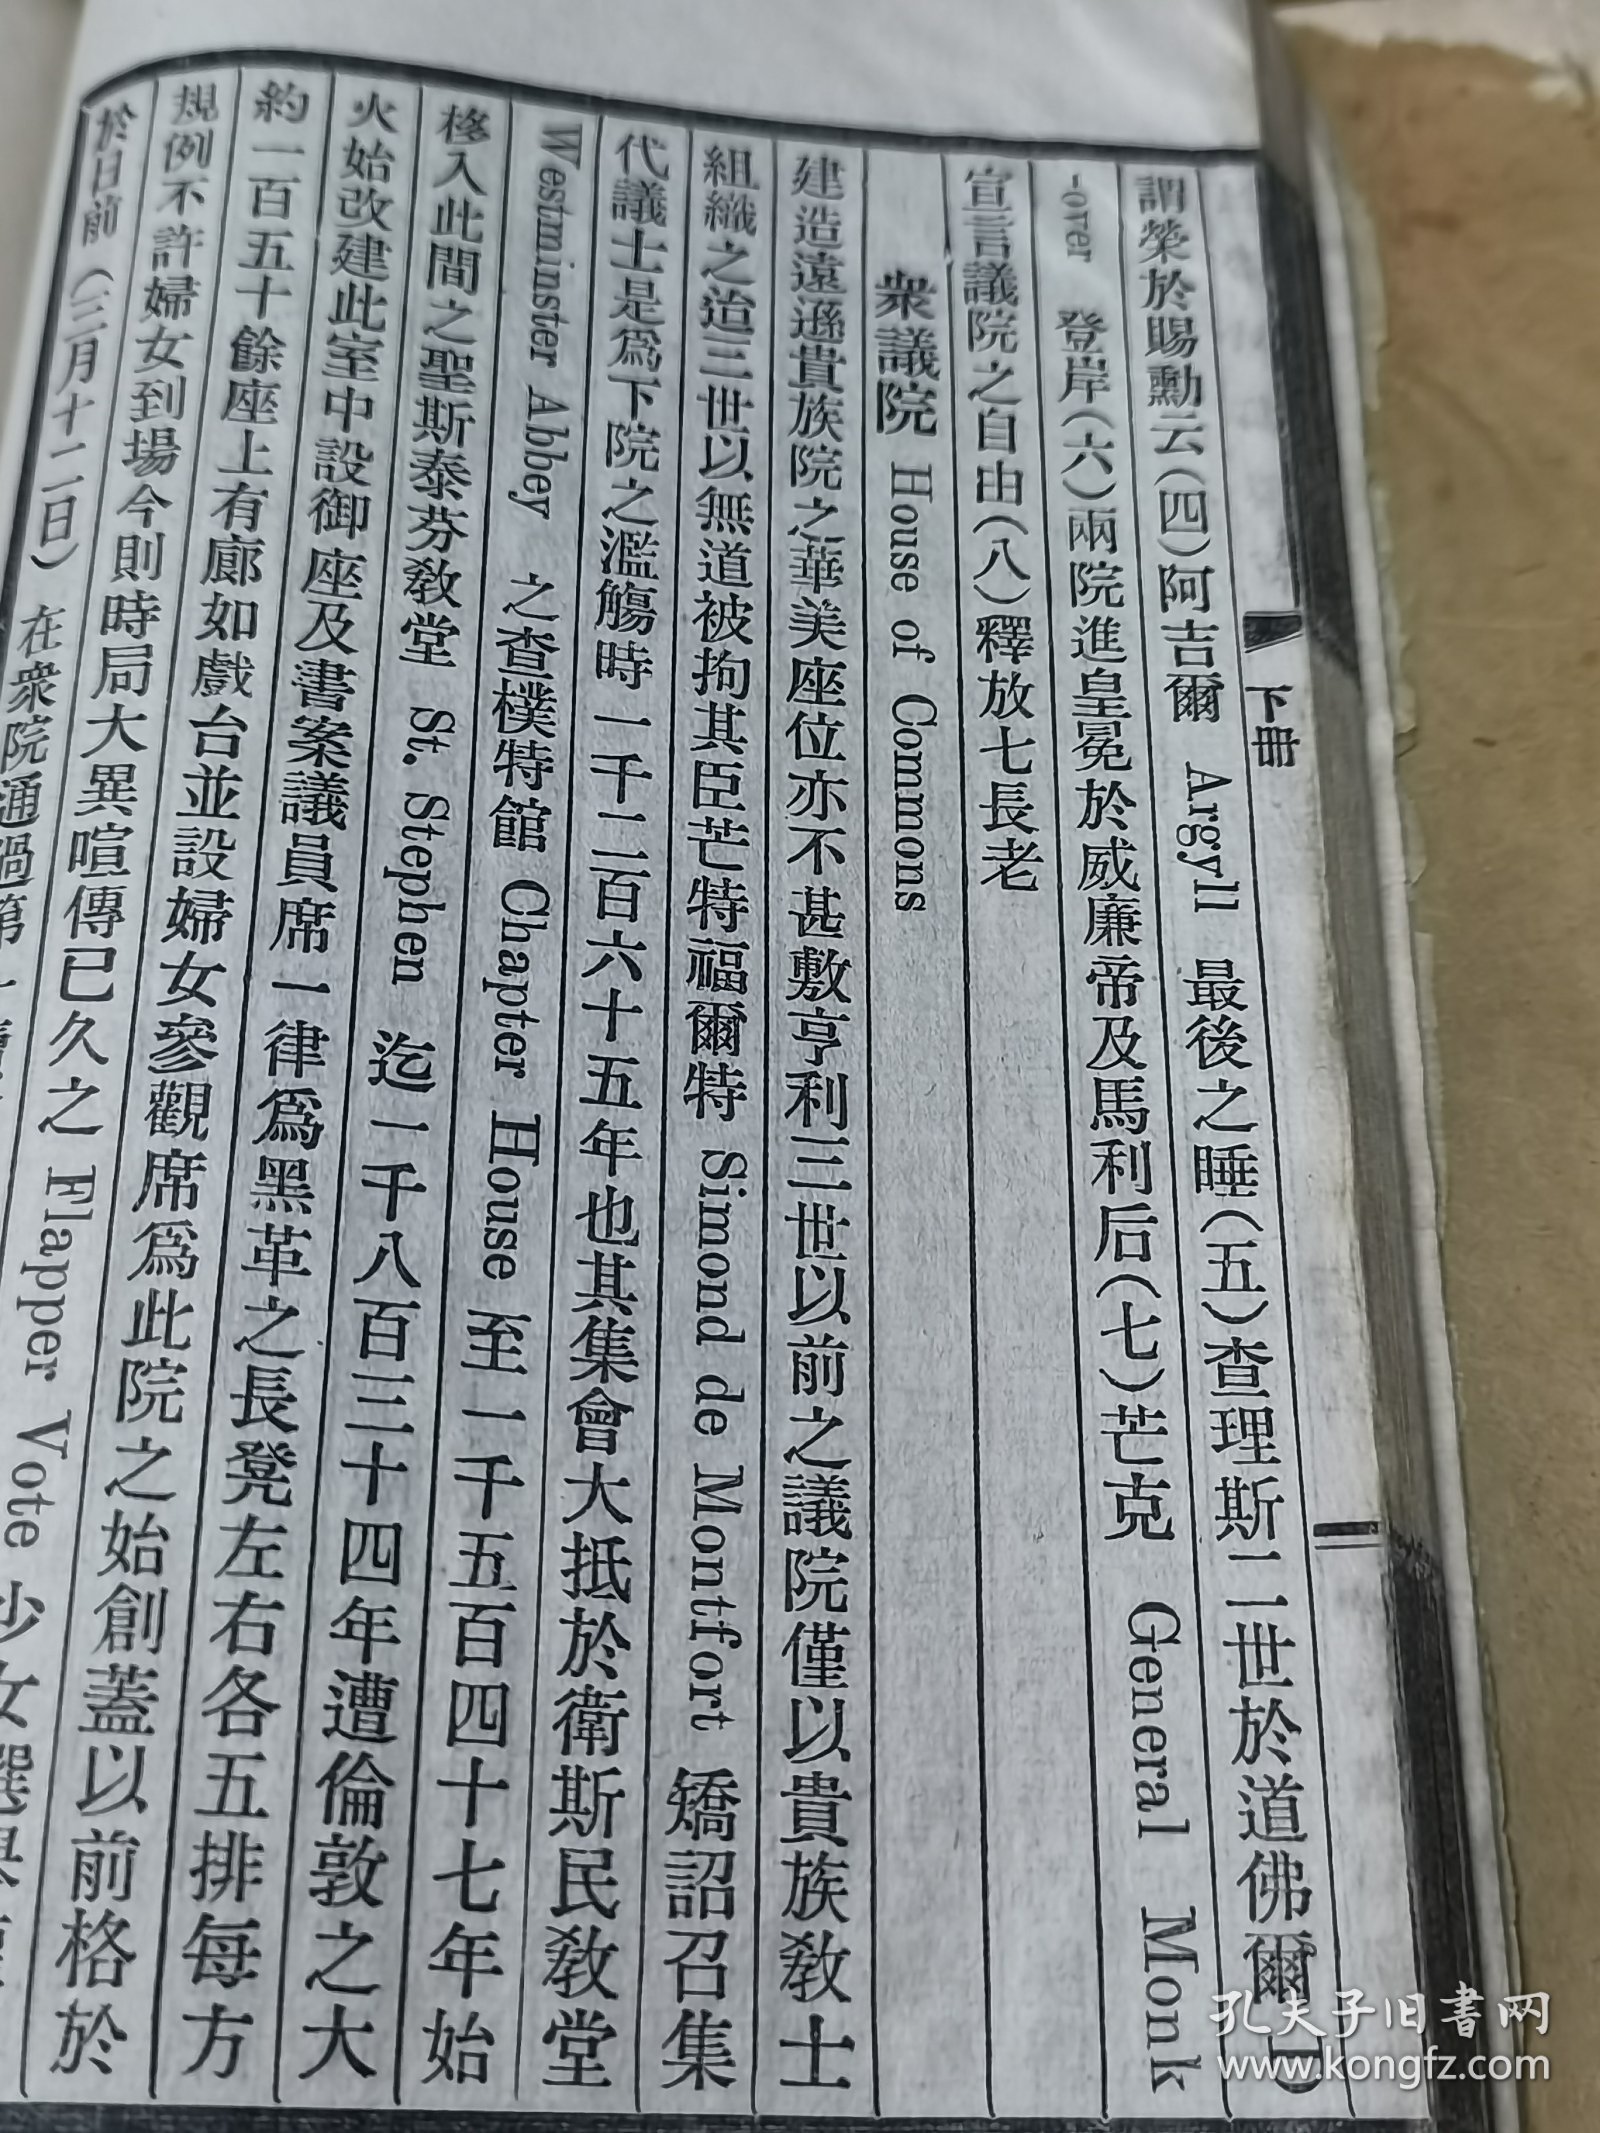 下冊
謂榮於賜勳云(四)阿吉爾 Argyll 最後之睡(五)查理斯二世於道佛爾 D
-over 登岸(六)兩院進皇冕於威廉帝及馬利后(七)芒克 General Monk
宣言議院之自由(八)釋放七長老
衆議院 House of Commons
建造遠遜貴族院之華美座位亦不甚敷亨利三世以前之議院僅以貴族敎士
組織之迨三世以無道被拘其臣芒特福爾特 Simond de Montfort 矯詔召集
代議士是爲下院之濫觴時一千二百六十五年也其集會大抵於衛斯民敎堂
Westminster Abbey 之查樸特館 Chapter House 至一千五百四十七年始
移入此間之聖斯泰芬敎堂 St. Stephen 迄一千八百三十四年遭倫敦之大
火始改建此室中設御座及書案議員席一律爲黑革之長凳左右各五排每方
約一百五十餘座上有廊如戲台並設婦女參觀席爲此院之始創蓋以前格於
規例不許婦女到場今則時局大異喧傳已久之 Flapper Vote 少女選舉
於日前(三月十二日)在衆院通過第一讀
孔夫子旧書网
www.kongfz.com